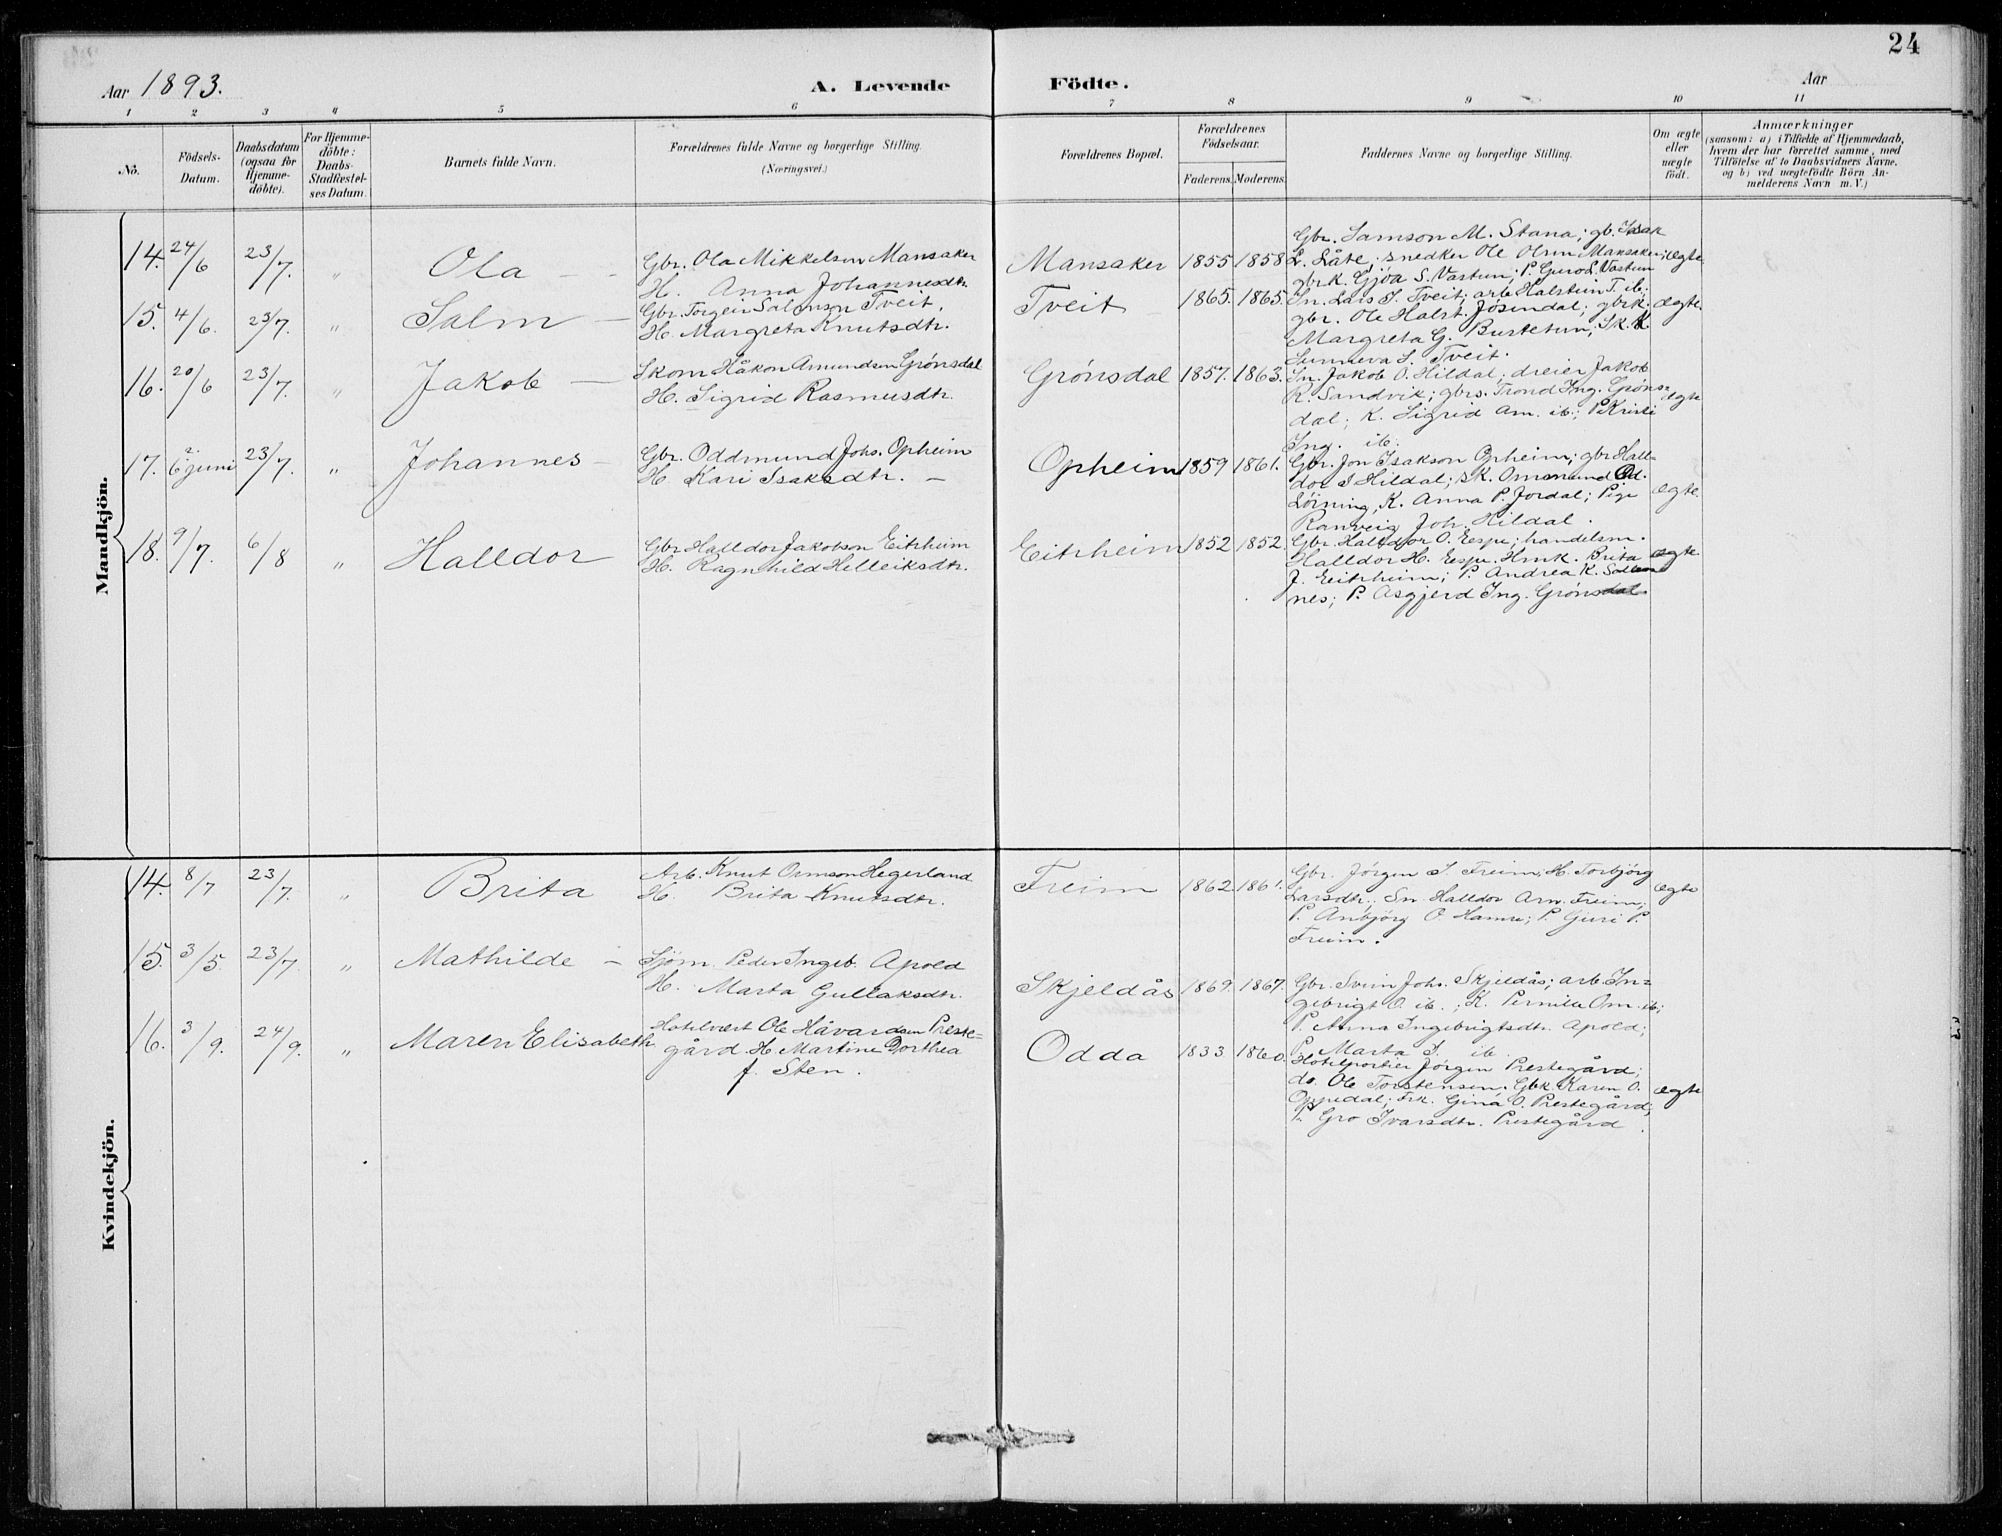 24
Aar 1893.
A. Levende Födte.
Aar
1 2 3 4 5 6 7 8 9 10 11
No.
Födsels-Datum.
Daabsdatum (ogsaa for Hjemme-döbte).
For Hjemme-döbte: Daabs-Stadfæstel-ses Datum.
Barnets fulde Navn.
Forældrenes fulde Navne og borgerlige Stilling.
(Næringsvei.)
Forældrenes Bopæl.
Forældrenes Födselsaar.
Faderens. Moderens.
Faddernes Navne og borgerlige Stilling.
Om ægte eller uægte födt.
Anmærkninger
(saasom: a) i Tilfælde af Hjemmedaab,
hvem der har forrettet samme, med
Tilföielse af to Daabsvidners Navne.
og b) ved uægtefödte Börn An-
melderens Navn m. V.)
Mandkjön.
14. 24/6 23/7. " Ola
Gbr. Ola Mikkelsen Mansaker
H. Anna Johannesdtr.
Mansaker 1855 1858
Gbr. Samson M. Stana; gb. Isak
L. Låte; snedker Ole Olsen Mansaker;
gbrk. Gjöa S. Vastun; P. Guro L. Vastun
ægte
15. 4/6. 23/7. " Salm
Gbr. Torgeir Salmson Tveit,
H. Margreta Knutsdtr.
Tveit 1865. 1865.
Sn. Lars S. Tveit; arb. Halstein T. ib.
gbr. Ole Halst. Jösendal; gbrk.
Margreta G. Bustetun; Sk. K.
Sunneva S. Tveit.
ægte.
16. 20/6 23/7. " Jakob
Skom Håkon Amundsen Grönsdal
H. Sigrid Rasmusdtr.
Grönsdal 1857. 1863.
Sn. Jakob O. Hildal; dreier Jakob
R. Sandvik; gbrs. Trond Ing. Gröns=
dal; K. Sigrid Am. ib.; P. Kristi
Ing. ib.
ægte
17. 2/6 juni 23/7. " Johannes
Gbr. Oddmund Johs. Opheim
H. Kari Isaksdtr.
Opheim 1859 1861.
Gbr. Jon Isakson Opheim; gbr Hall-
dor S Hildal; sk. Ommund Od.
Löining, K. Anna P. Jordal; Pige
Ranveig Joh. Hildal.
ægte.
18. 9/7. 6/8 " Halldor
Gbr Halldor Jakobson Eitrheim
H. Ragnhild Helleiksdtr.
Eitrheim 1852 1852.
Gbr. Halldor O. Espe; handelsm.
Halldor H. Espe. Hmk. Brita
J. Eitrheim; P. Andrea K.
nes; P. Asgjerd Ing. Grönsdal
ægte
Kvindekjön.
14. 8/7 23/7. " Brita
Arb. Knut Ormson Hegerland
H. Brita Knutsdtr.
Freim 1862 1861.
Gbr. Jörgen S. Freim; H. Torbjörg
Larsdtr.; Sn Halldor Arn. Freim;
P. Anbjörg O. Hamre; P. Guri P
Freim.
ægte
15. 3/5. 23/7. " Mathilde
Sjöm. Peder Ingeb. Apold
H. Marta Gullaksdtr.
Skjeldås 1869. 1867.
Gbr. Svein Johs. Skjeldås; arb In=
gebrigt O. ib.; K. Pernille Om. ib;
P. Anna Ingebrigtsdtr. Apold;
P. Marta S. ib
16. 3/9. 24/9. " Maren Elisabeth
Hotelvært Ole Håvardsen Preste-
gård. H. Martine Dorthea
f. Sten.
Odda 1833 1860.
Hotelportier Jörgen Prestegård;
do. Ole Torstensen. Gbk. Karen O.
Oppedal; frk. Gina O. Prestegård;
P. Gro Ivarsdtr. Prestegård.
ægte